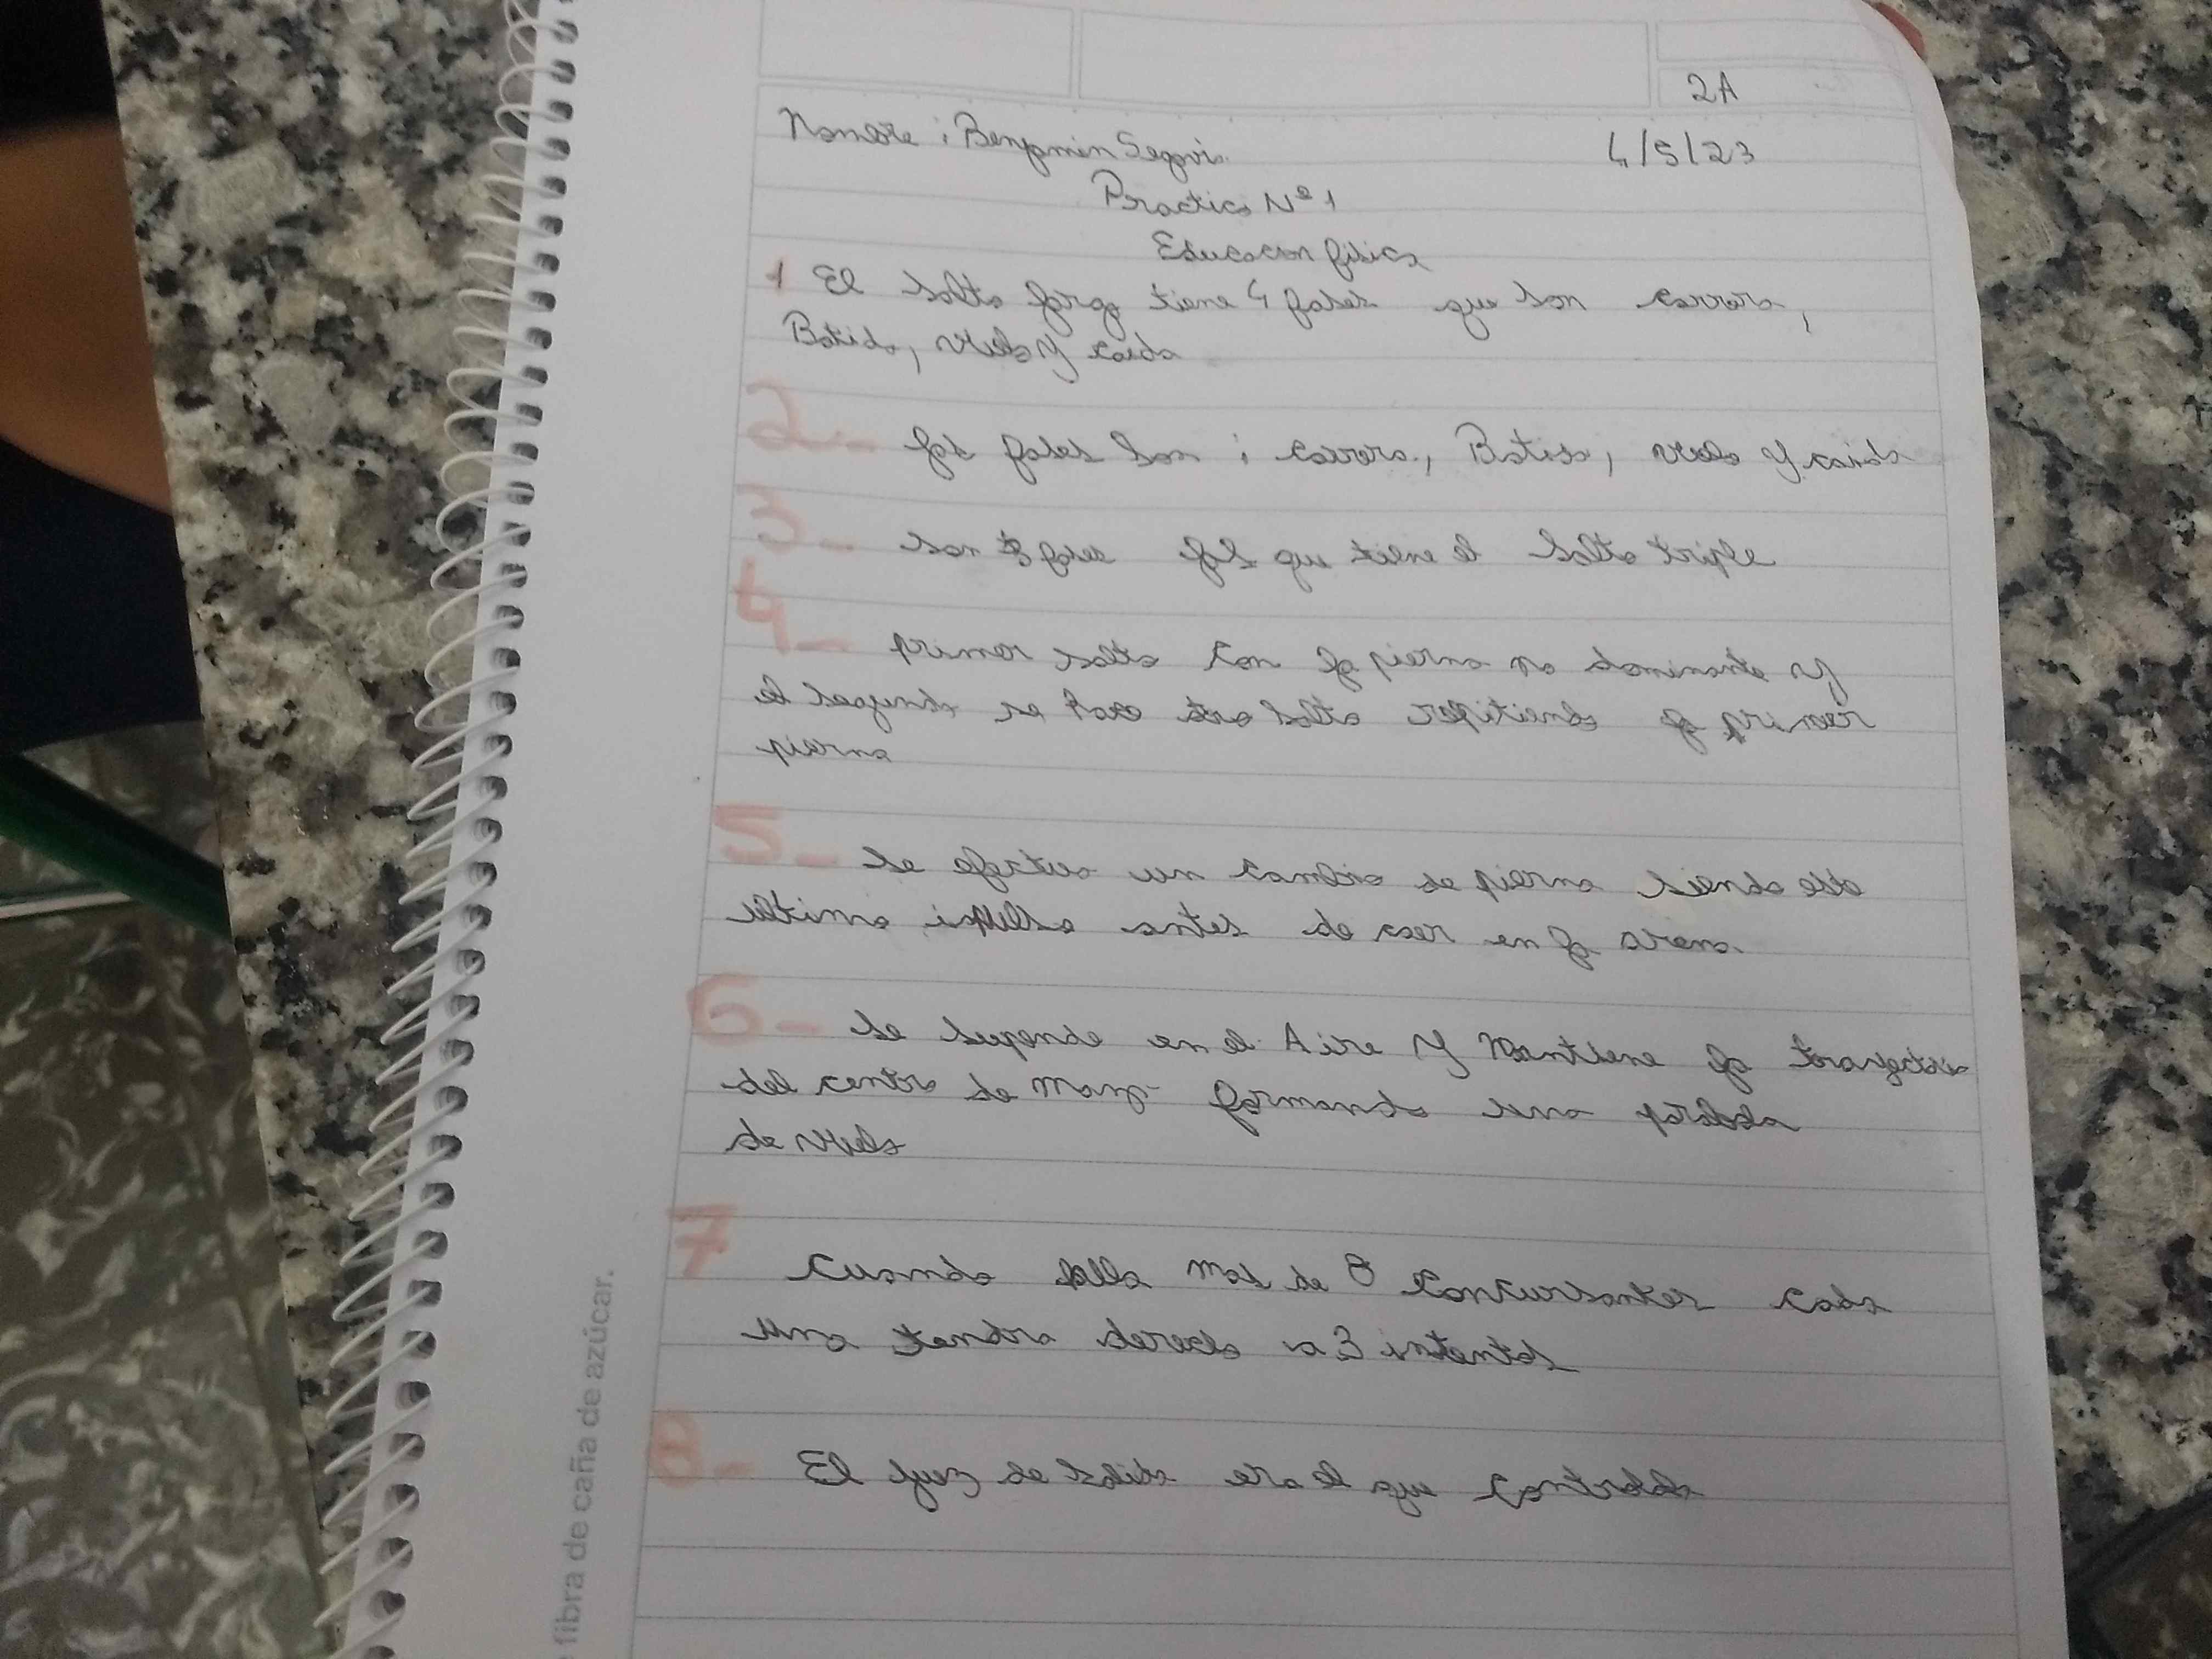 2A
Nombre : Benjamin Segovia 4/5/23
Practico Nº 1
Educacion fisica
1 El salto largo tiene 4 fases que son carrera,
Batida, vuelo y caida
2- las fases son : carrera, Batida, vuelo y caida
3- son 3 fases las que tiene el salto triple
4- primer salto con la pierna no dominante y
el segundo se hace otro salto repitiendo la primer
pierna
5- se efectua un cambio de pierna siendo este
ultimo antes de caer en la arena
6- se supende en el Aire y Mantiene la
del centro de formando una
de vuelo
7 cuando mas de 8 concursantes cada
uno tendra derecho a 3 intentos
8- El juez de salida era el que
fibra de caña de azúcar.